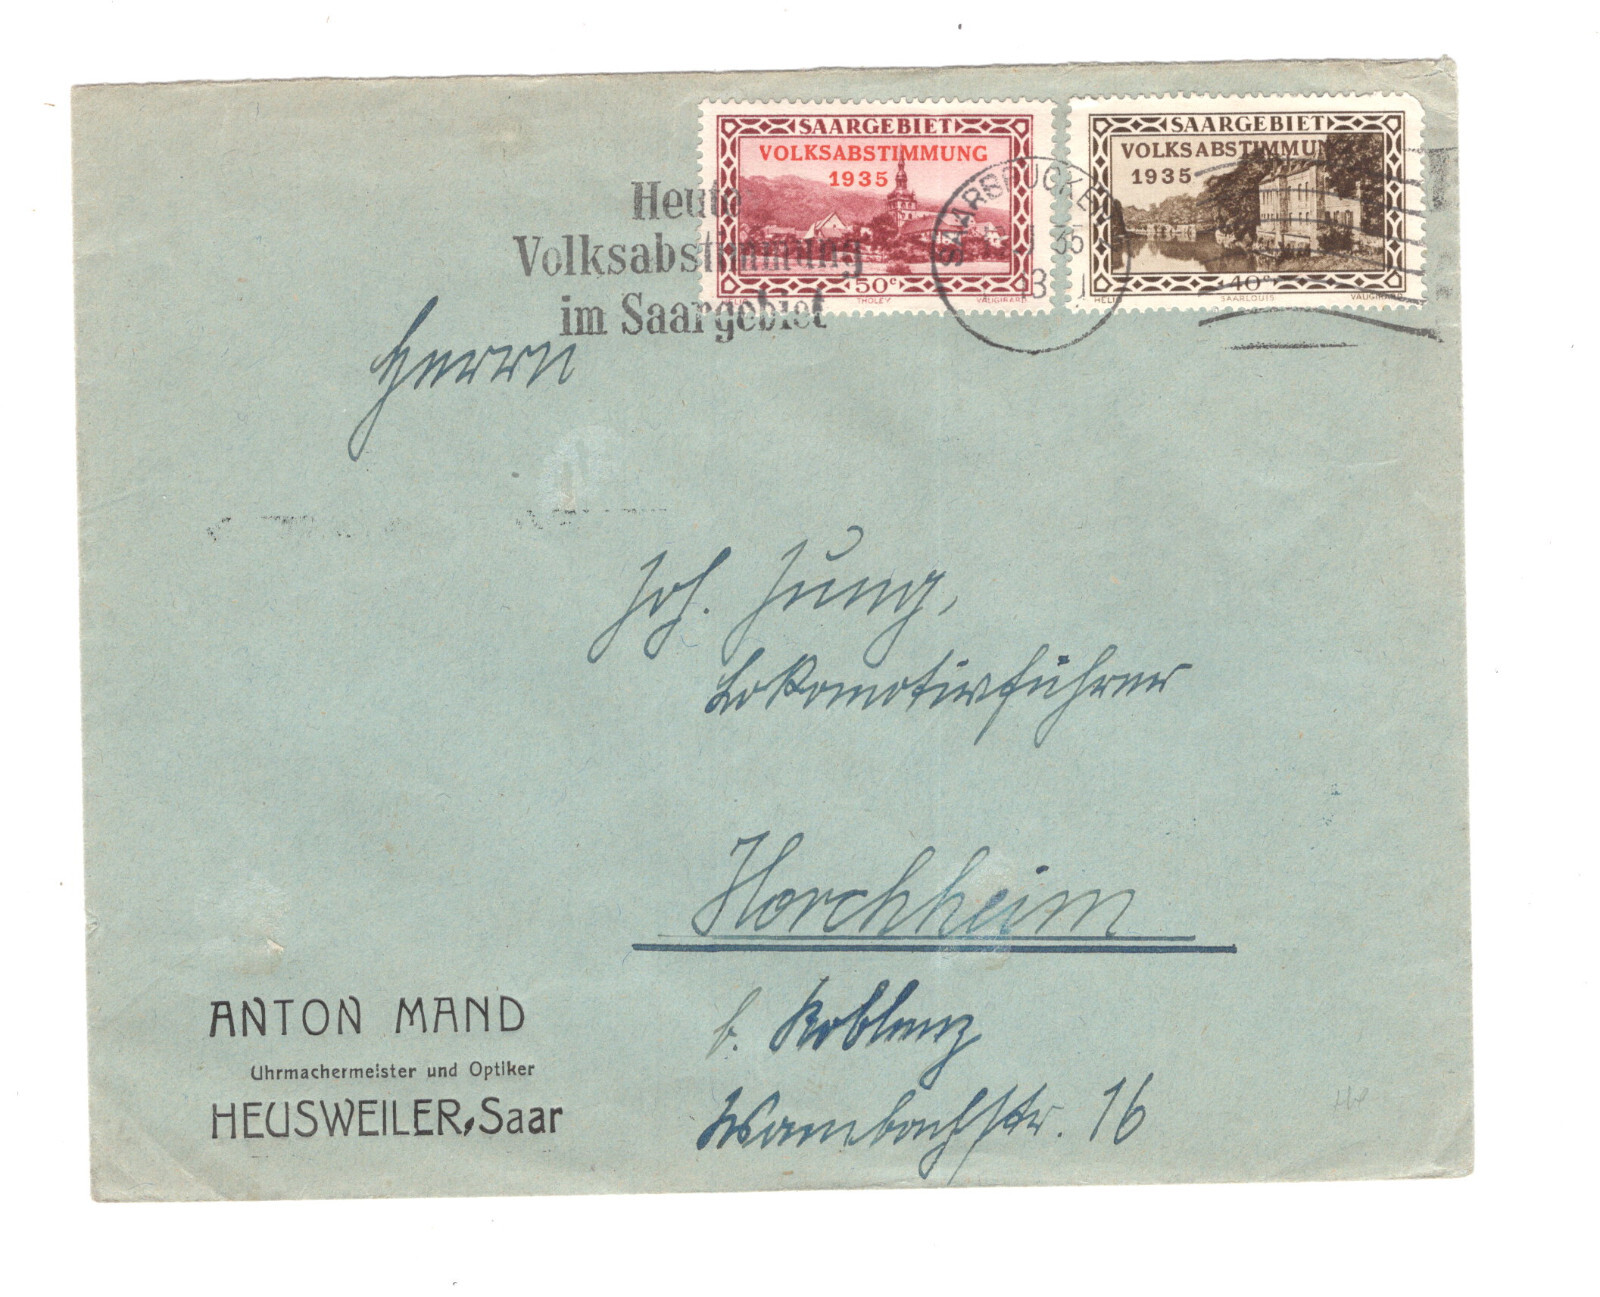 SAARGEBIET
VOLKSABSTIMMUNG
1935
50c
HELIO THOLEY VAUGIRARD
SAARGEBIET
VOLKSABSTIMMUNG
1935
40c
HELIO SAARLOUIS VAUGIRARD
SAARBRÜCKEN
35
Heute
Volksabstimmung
im Saargebiet
Herrn
Joh. Jung,
Lokomotivführer
Horchheim
b. Koblenz
Wambachstr. 16
ANTON MAND
Uhrmachermeister und Optiker
HEUSWEILER, Saar